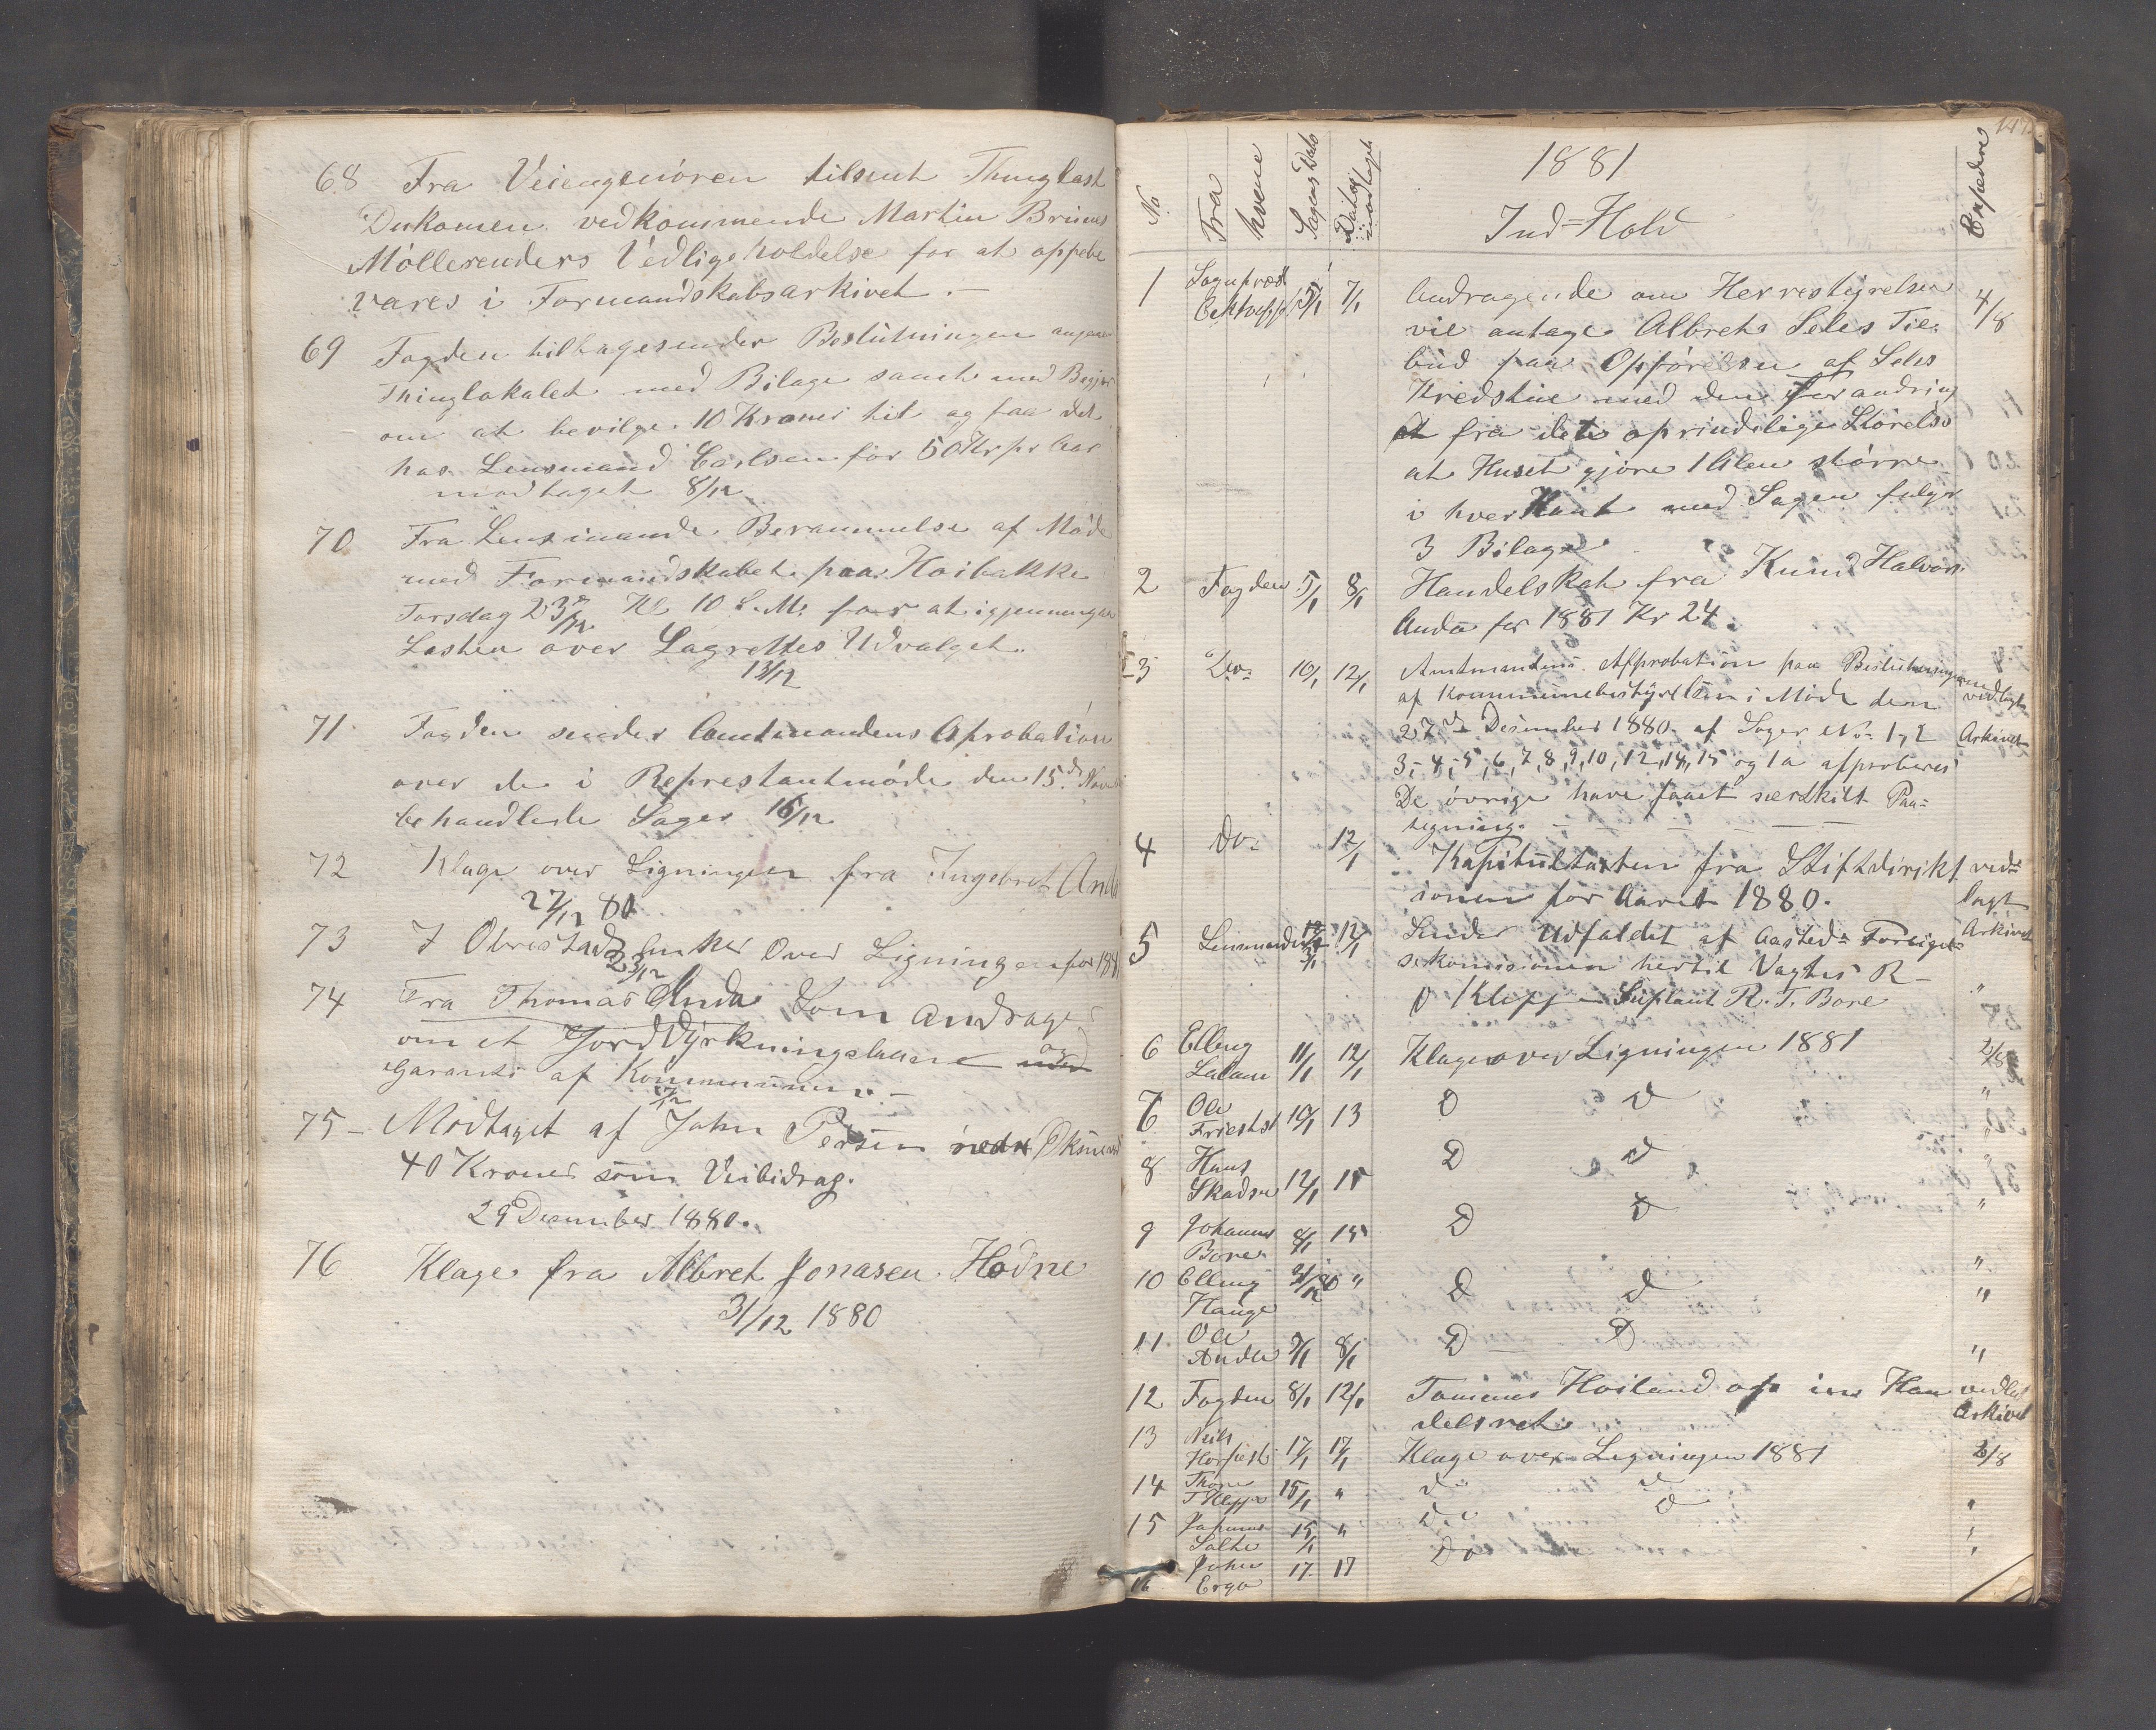 68 Fra Veiengeniøren tilsent Thinglæst
Dokomen vedkommende Martin Brunes
Møllerenders Vedligeholdelse for at oppebe
vares i Formandskabsarkivet. —
69 Fogden tilbagesender Beslutningen angaae
Thinglokalet med Bilage samt med Begjær
om at bevilge 10 Kroner til og faa det
hos Lensmand Carlsen for 50 Kr pr Aar
modtaget 8/12
70 Fra Lensmande Berammelse af Møde
med Formandskabet paa Hoibakke
Torsdag 23de/12 Kl 10 F.M. for at igjennemgaa
Listen over Lagrettes Udvalget.
13/12
71 Fogden sender Amtmandens Aprobation
over de i Represtantmøde den 15de Novem
behandlede Sager 16/12
72 Klage over Ligningen fra Ingebret Anda
27/12 80
73 I Obrestad Anker Over Ligningen for 188
23/12
74 Fra Thomas Anda Som andrager
om et Jorddyrkningslaan og
Garanti af Kommunen. —
75 — Modtaget af John Persen nedr Øksnevad
40 Kroner som Veibidrag.
29 Desember 1880.
76 Klage fra Albret Jonasen Hodne
31/12 1880
147
No Fra hvem Sagens Dato Datos modtaget 1881 Expedere
Ind=Hold
1 Sogneprest 5/1 7/1 Andragende om Herrestyrelsen 4/8
vil antage Albrets Seles Til
bud paa Opførelsen af Seles
Kredshue med den forandring
at fra dets oprindelige Størelse
at Huset gjøre 1 Alen større
i hver Kant med Sagen fulgte
3 Bilage
2 Fogden 5/1 8/1 Handelskat fra Knud Halvors
Anda for 1881 Kr 24.
3 Do 10/1 12/1 Amtmandens Approbation paa Beslutninger vedlagt
af Kommunebestyrelsen i Møde den
27de Desember 1880 af Sager No 1, 2 Arkivet
3, 4, 5, 6, 7, 8, 9, 10, 12, 14, 15 og 1a approberes
De øvrige have faaet særskilt Paa=
tegning. — — — — —
4 Do. 12/1 Kapitultaxten fra Stiftdirikt ved=
ionen for Aaret 1880. lagt
5 Lensmanden 12/1 Sender Udfaldet af Aasteds Forligel= Arkivet
seskomisionen hertil Vagtes R —
O Klepp — Suplant R. T. Bore "
6 Elling Lalane 11/1 12/1 Klage over Ligningen 1881 2/8
7 Ole Friestst 10/1 13 D D "
8 Hans Skadse 12/1 15 D D "
9 Johannes Bore 8/1 15 D D "
10 Elling Hauge 31/12 80 " D D "
11 Ole Anda 7/1 8/1 D D "
12 Fogden 8/1 12/1 Tommes Hoiland op in Han vedlat
delsret Arkivet
13 Neils Horpest 17/1 17/1 Klage over Ligningen 1881 2/8
14 Thore T Klepp 15/1 " D D
15 Johannes Salte 15/1 " Do D "
16 John Erga 17 17 Do "